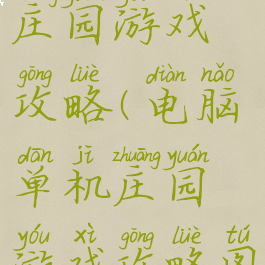 庄园游戏
gōng lüè diàn nǎo
攻略(电脑
dān jī zhuāng yuán
单机庄园
yóu xì gōng lüè tú
游戏攻略图